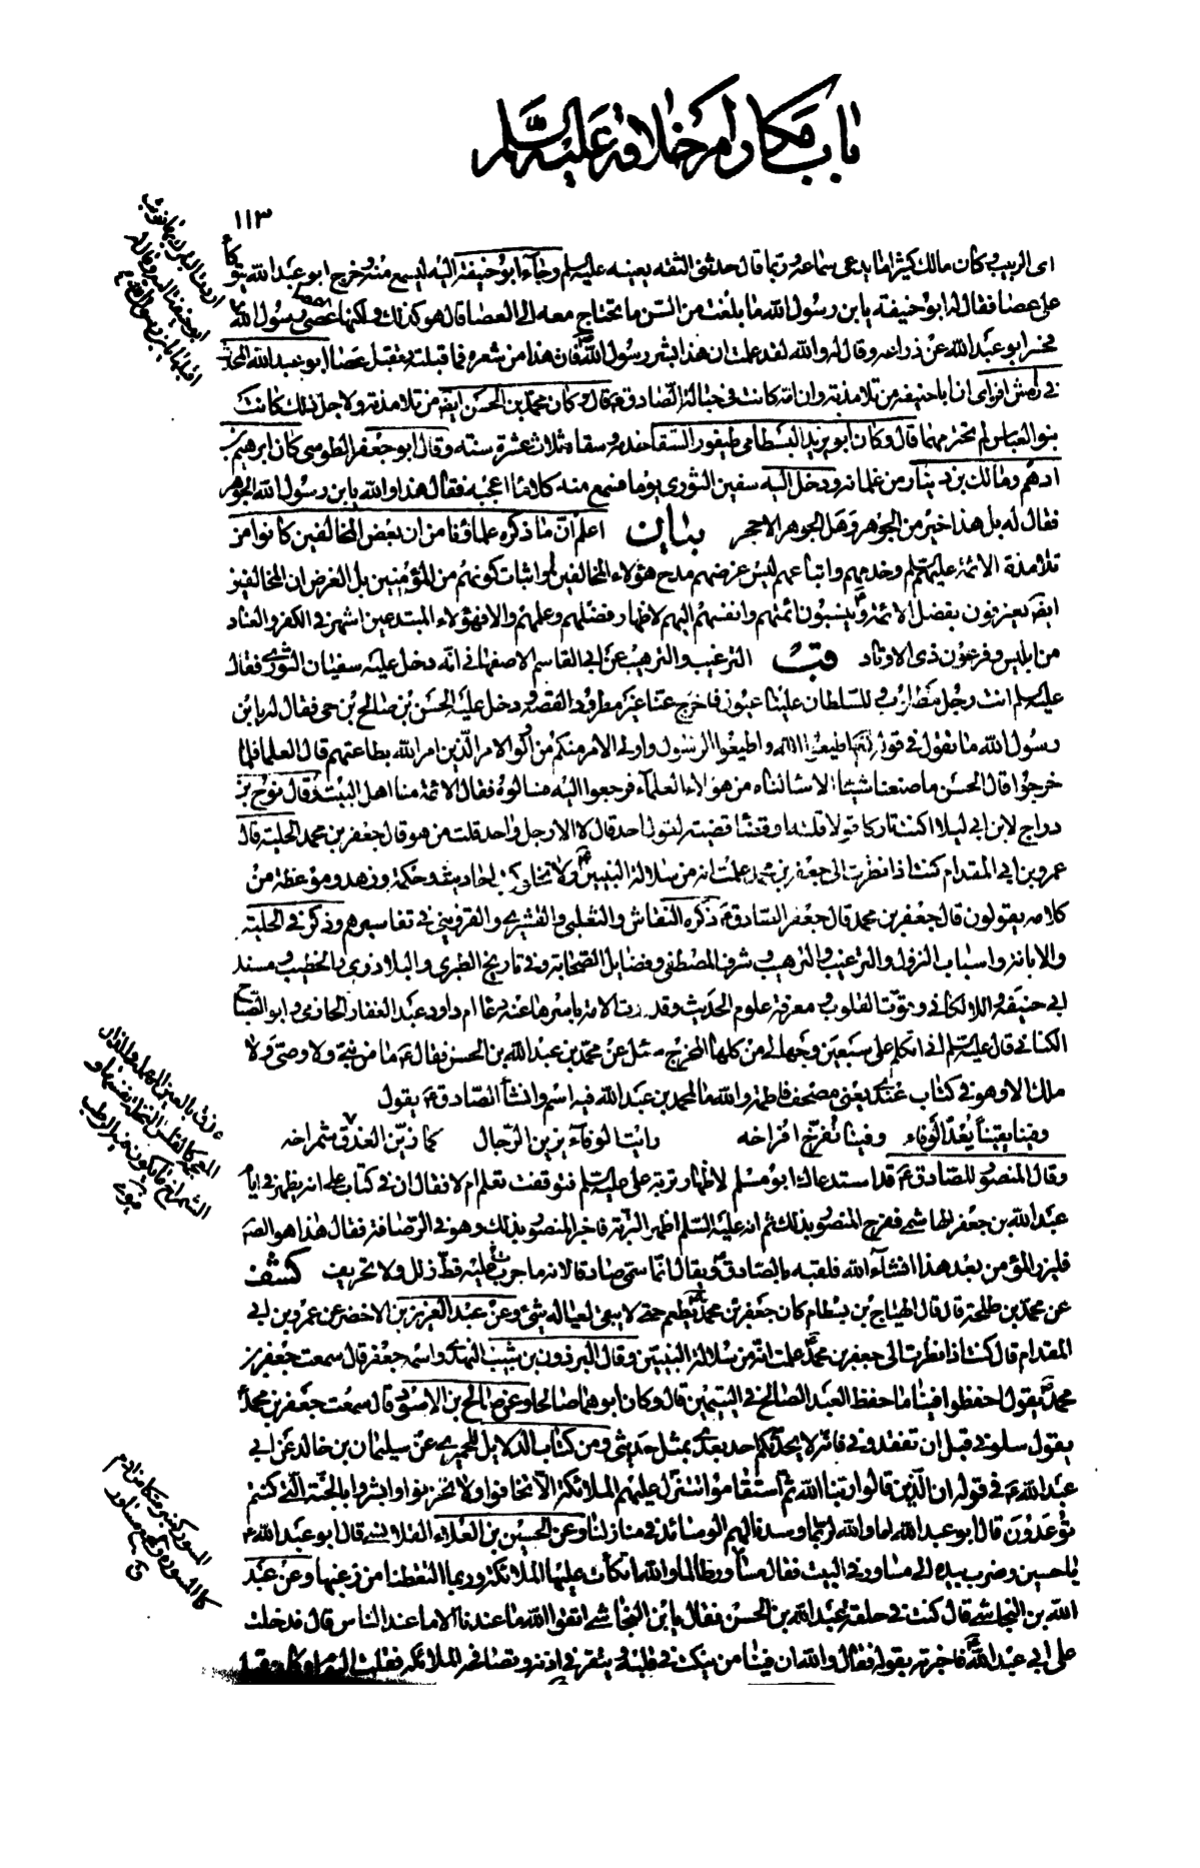 باب مكارم اخلاقه عليه السلم
١١٣
اى الربيب وكان مالك كثيرا ما يدعى سماعه وربما قال حدثنى الثقه يعنيه عليه سلم وجاء ابو حنيفة اليه ليسمع منه وخرج ابو عبد الله يتوكأ
على عصا فقال له ابو حنيفه يا بن رسول الله ما بلغت من السن ما تحتاج معه الى العصا قال هو كذلك ولكنها عصى رسول الله
فحسر ابو عبد الله عن ذراعه وقال له والله لقد علمت ان هذا بشر رسول الله وان هذا من شعره فما قبلته وتقبل عصا ابو عبد الله المحدث
فى رامش افزاى ان ابا حنيفه من تلامذته وان امه كانت فى حبالة الصادق ع قال وكان محمد بن الحسن ايضا من تلامذته ولاجل ذلك كانت
بنو العباس لم تحترمهما قال وكان ابو يزيد البسطامى طيفور السقا خدمه وسقاه ثلاث عشرة سنه وقال ابو جعفر الطوسى كان ابرهيم بن
ادهم ومالك بن دينار من غلمانه ودخل اليه سفين الثورى يوما فسمع منه كلاما اعجبه فقال هذا والله يا بن رسول الله الجوهر
فقال له بل هذا خير من الجوهر وهل الجوهر الا حجر بيان اعلم ان ما ذكره علماؤنا من ان بعض المخالفين كانوا من
تلامذة الائمة عليهم سلم وخدمهم واتباعهم ليس غرضهم مدح هؤلاء المخالفين او اثبات كونهم من المؤمنين بل الغرض ان المخالفين
ايضا يعترفون بفضل الائمة وينسبون ائمتهم وانفسهم اليهم لاظهار فضلهم وعلمهم والا فهؤلاء المبتدعين اشهر فى الكفر والعناد
من ابليس وفرعون ذى الاوتاد قب الترغيب والترهيب عن ابى القاسم الاصفهانى انه دخل عليه سفيان الثورى فقال
عليه سلم انت رجل مطلوب وللسلطان علينا عيون فاخرج عنا غير مطرود القصة ودخل عليه الحسن بن صالح بن حى فقال له يا بن
رسول الله ما تقول فى قوله تعالى اطيعوا الله واطيعوا الرسول واولى الامر منكم من اولو الامر الذين امر الله بطاعتهم قال العلماء فلما
خرجوا قال الحسن ما صنعنا شيئا الا سالناه من هؤلاء العلماء فرجعوا اليه فسالوه فقال الائمة منا اهل البيت وقال نوح بن
دراج لابن ابى ليلا اكنت تاركا قولا قلته او قضاء قضيته لقول احد قال لا الا رجل واحد قلت من هو قال جعفر بن محمد الحلية قال
عمرو بن ابى المقدام كنت اذا نظرت الى جعفر بن محمد علمت انه من سلالة النبيين ولا تخلو كتب احاديث وحكمة وزهد وموعظة من
كلامه يقولون قال جعفر بن محمد قال جعفر الصادق ع ذكره النقاش والثعلبى والقشيرى والقزوينى فى تفاسيرهم وذكر فى الحلية
والابانة واسباب النزول والترغيب والترهيب وشرف المصطفى وفضايل الصحابة وفى تاريخ الطبرى والبلاذرى والخطيب ومسند
ابى حنيفة واللالكانى وقوت القلوب ومعرفة علوم الحديث وقد روت الامة باسرها عنه دعاء ام داود عبد الغفار الحازمى وابو الصباح
الكنانى قال عليه سلم انى اتكلم على سبعين وجها لى من كلها المخرج سئل عن محمد بن عبد الله بن الحسن فقال ع ما من نبى ولا وصى ولا
ملك الا وهو فى كتاب عندى يعنى مصحف فاطمة والله ما لمحمد بن عبد الله فيه اسم وانشأ الصادق ع يقول
وفينا يقينا يعد الوفاء وفينا تفرخ افراخه رايت الوفاء يزين الرجال كما زين العذق شمراخه
وقال المنصور للصادق ع قد استدعاك ابو مسلم لاظهار تربة على عليه سلم فتوقفت تعلم ام لا فقال ان فى كتاب على انه يظهر فى ايام
عبد الله بن جعفر الهاشمى ففرح المنصور بذلك ثم انه عليه السلم اظهر التربة فاخبر المنصور بذلك وهو فى الرصافة فقال هذا هو الصادق
فليزر المؤمن بعد هذا انشاء الله فلقبه بالصادق ويقال انما سمى صادقا لانه ما جرب عليه قط زلل ولا تحريف كشف
عن محمد بن طلحة قال قال الهياج بن بسطام كان جعفر بن محمد يطعم حتى لا يبقى لعياله شىء وعن عبد العزيز بن الاخضر عن عمرو بن ابى
المقدام قال كنت اذا نظرت الى جعفر بن محمد علمت انه من سلالة النبيين وقال البرذون بن شبيب النهدى واسمه جعفر قال سمعت جعفر بن
محمد يقول احفظوا فينا ما حفظ العبد الصالح فى اليتيمين قال وكان ابوهما صالحا وعن صالح بن الاسود قال سمعت جعفر بن محمد
يقول سلونى قبل ان تفقدونى فانه لا يحدثكم احد بعدى بمثل حديثى ومن كتاب الدلايل للحميرى عن سليمان بن خالد عن ابى
عبد الله ع فى قوله ان الذين قالوا ربنا الله ثم استقاموا تتنزل عليهم الملائكة الا تخافوا ولا تحزنوا وابشروا بالجنة التى كنتم
توعدون قال ابو عبد الله اما والله لربما وسدنا لهم الوسائد فى منازلنا وعن الحسين بن العلاء القلانسى قال ابو عبد الله ع
يا حسين وضرب بيده الى مساور فى البيت فقال مساور طالما والله اتكات عليها الملائكة وربما التقطنا من زغبها وعن عبد
الله بن النجاشى قال كنت فى حلقة عبد الله بن الحسن فقال يا بن النجاشى اتقوا الله ما عندنا الا ما عند الناس قال فدخلت
على ابى عبد الله فاخبرته بقوله فقال والله ان فينا من ينكت فى قلبه وينقر فى اذنه وتصافحه الملائكة فقلت اليوم او كان قبل